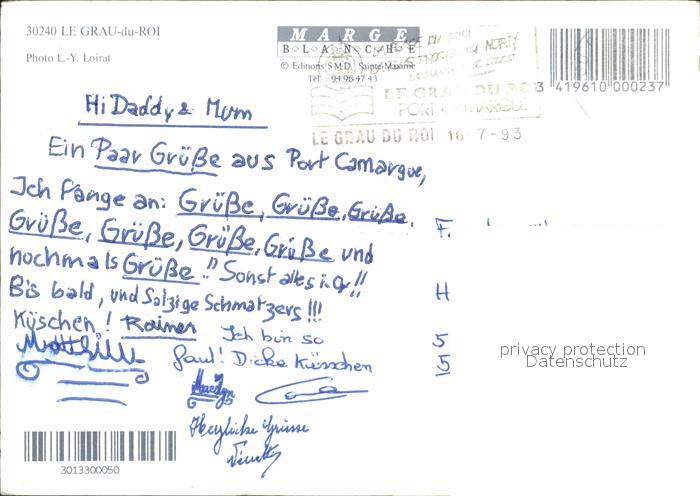 30240 LE GRAU-du-ROI
Photo L.-Y. Loirat
MARGE
BLANCHE
© Editions S.M.D. Sainte Maxime
Tél. 94 96 47 43
LE GRAU DU ROI
PORT CAMARGUE
LE GRAU DU ROI 16-7-93
3 419610 000237
Hi Daddy & Mum
Ein Paar Grüße aus Port Camargue,
Ich fange an: Grüße, Grüße, Grüße,
Grüße, Grüße, Grüße, Grüße und
nochmals Grüße!! Sonst alles i.O!!
Bis bald, und Salzige Schmatzers!!!
Küschen! Rainer
Ich bin so
faul! Dicke Küsschen
Herzliche Grüsse
F.
H
5
5
privacy protection
Datenschutz
3013300050